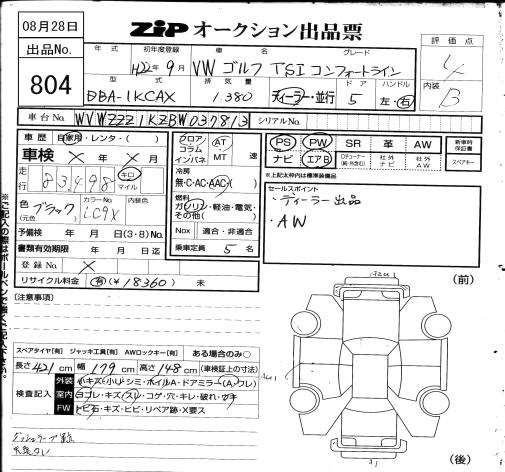 08月28日
ZIP オークション出品票
出品No.
804
年式 初年度登録 車名 グレード
H22年9月 VW ゴルフ TSI コンフォートライン
型式 排気量 ドア ハンドル
DBA-1KCAX 1380 ディーラー・並行 5 左・右
評価点
4
内装
B
車台No. WVWZZZ1KZBW037813 シリアルNo.
車歴 自家用・レンタ・( )
車検 × 年 × 月
走行 83498 キロ マイル
色 ブラック (元色) カラーNo. LC9X 内装色
予備検 年 月 日(3・8)No.
書類有効期限 年 月 日迄
登録No. ×
リサイクル料金 有(¥18360) 未
フロア コラム インパネ AT MT 速
冷房
無・C・AC・AAC・( )
燃料
ガソリン・軽油・電気・その他( )
Nox 適合・非適合
乗車定員 5 名
PS PW SR 革 AW
ナビ エアB 社外ナビ 社外AW
新車時保証書
スペアキー
※上記太枠内は標準装備品
セールスポイント
・ディーラー出品
・AW
※ご記入の際はボールペンで強くご記入下さい。
[注意事項]
スペアタイヤ[有] ジャッキ工具[有] AWロックキー[有] ある場合のみ○
長さ 421 cm 幅 179 cm 高さ 148 cm (車検証上の寸法)
検査記入
外装 小キズ・小U・シミ・ホイルA・ドアミラー(A・ワレ)
室内 ヨゴレ・キズ・スレ・コゲ・穴・キレ・破れ・ウキ
FW トビ石・キズ・ヒビ・リペア跡・X要ス
(前)
(後)